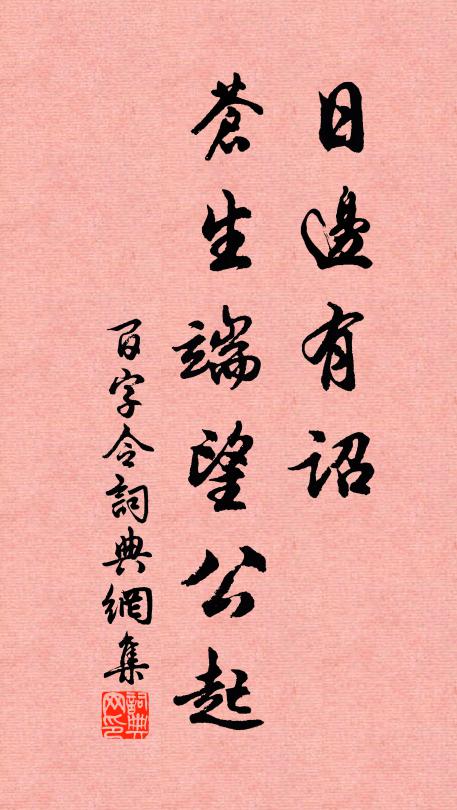 日邊有詔
蒼生端望公起
百字令詞典網集
詞典网印